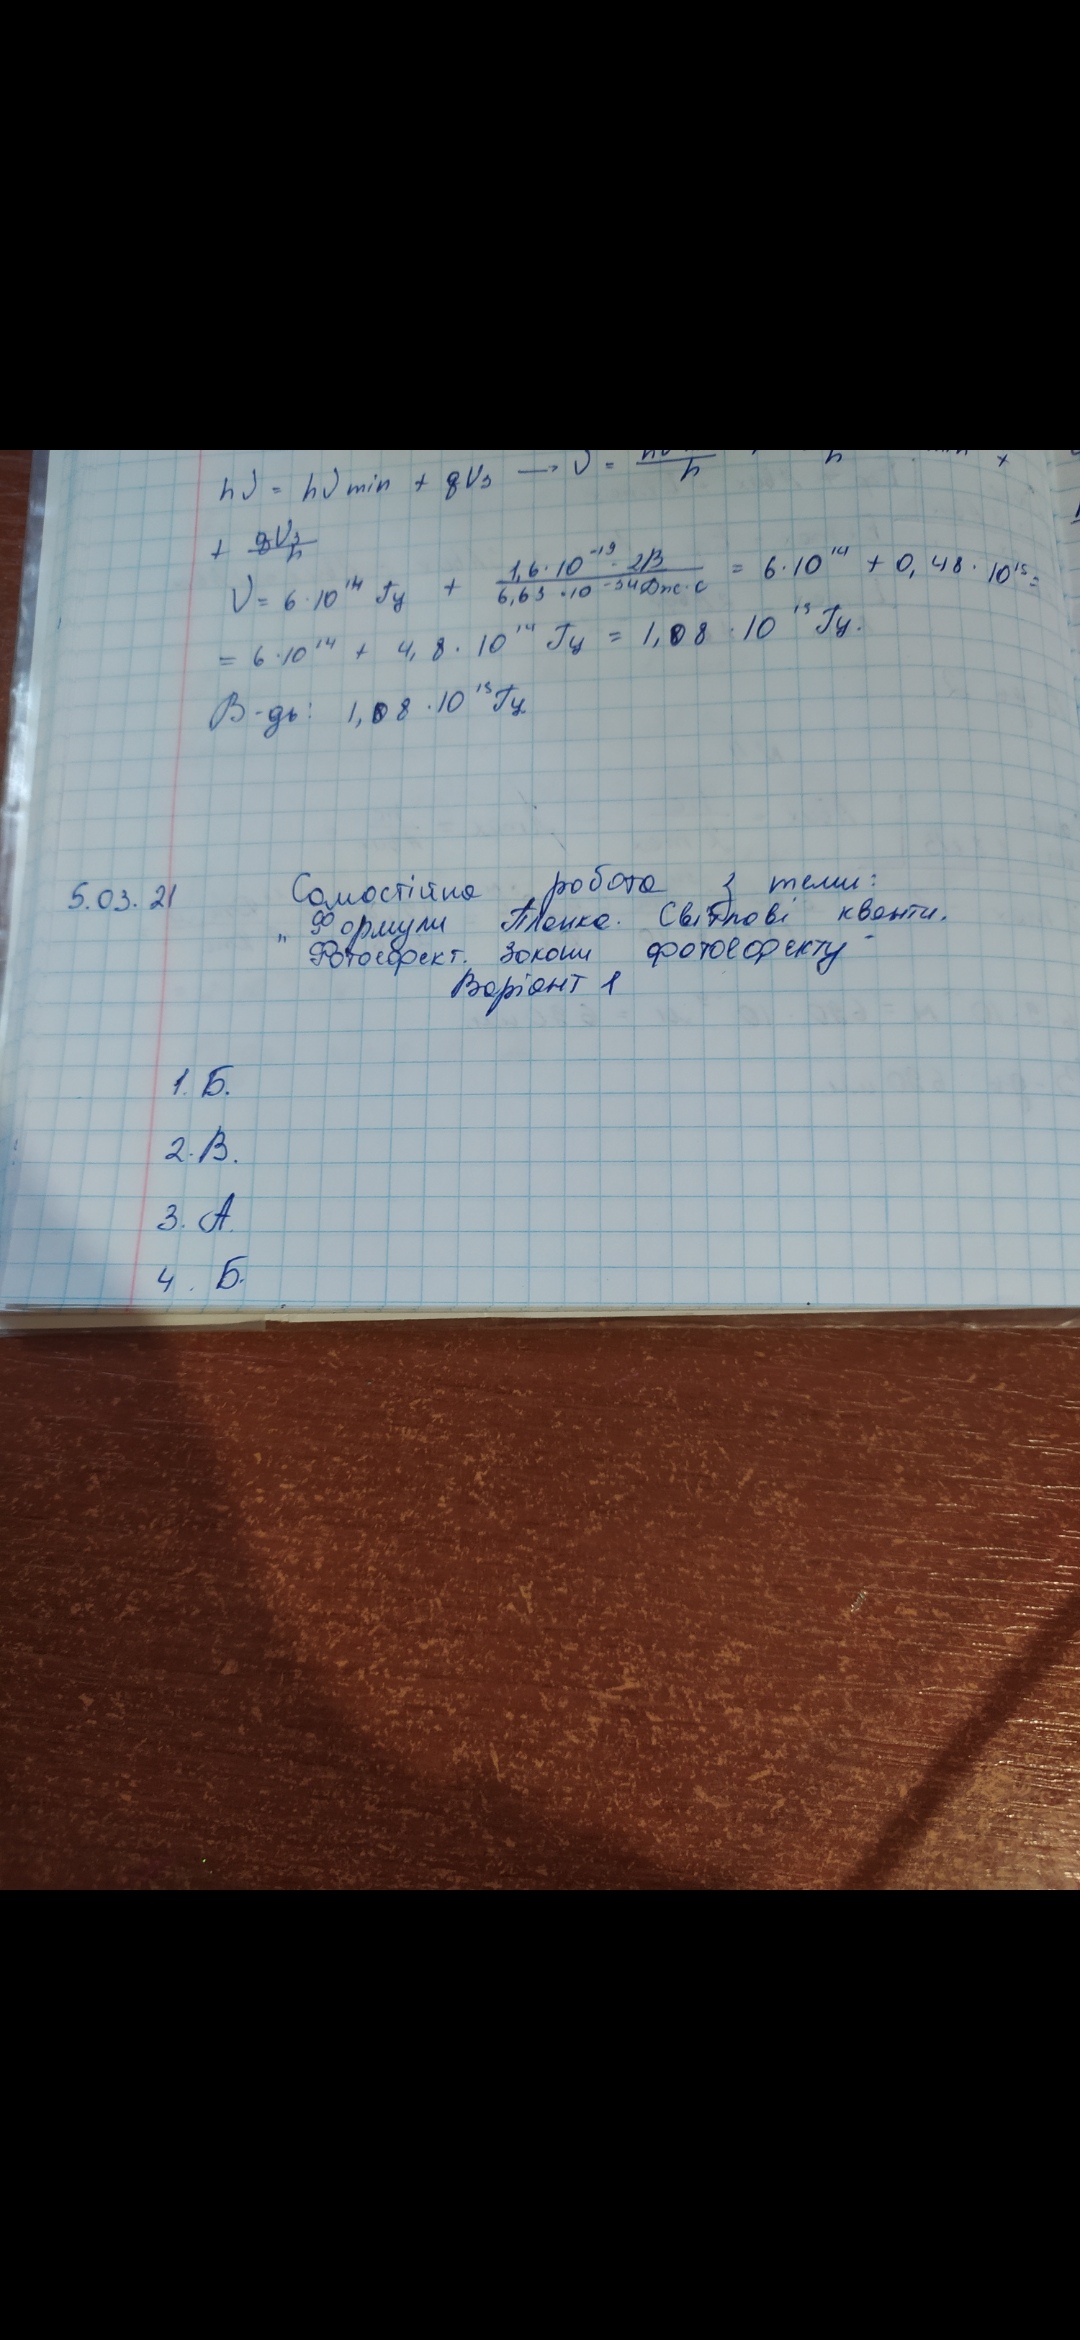 hν = hν min + qUз → ν = hν / h
+ qUз / h
ν = 6·10¹⁴ Гц + 1,6·10⁻¹⁹·2В / 6,63·10⁻³⁴Дж·с = 6·10¹⁴ + 0,48·10¹⁵ =
= 6·10¹⁴ + 4,8·10¹⁴ Гц = 1,08·10¹⁵ Гц.
В-дь: 1,08·10¹⁵ Гц
5.03.21 Самостійна робота з теми:
„Формули Планка. Світлові кванти.
Фотоефект. Закони фотоефекту"
Варіант 1
1. Б.
2. В.
3. А.
4. Б.